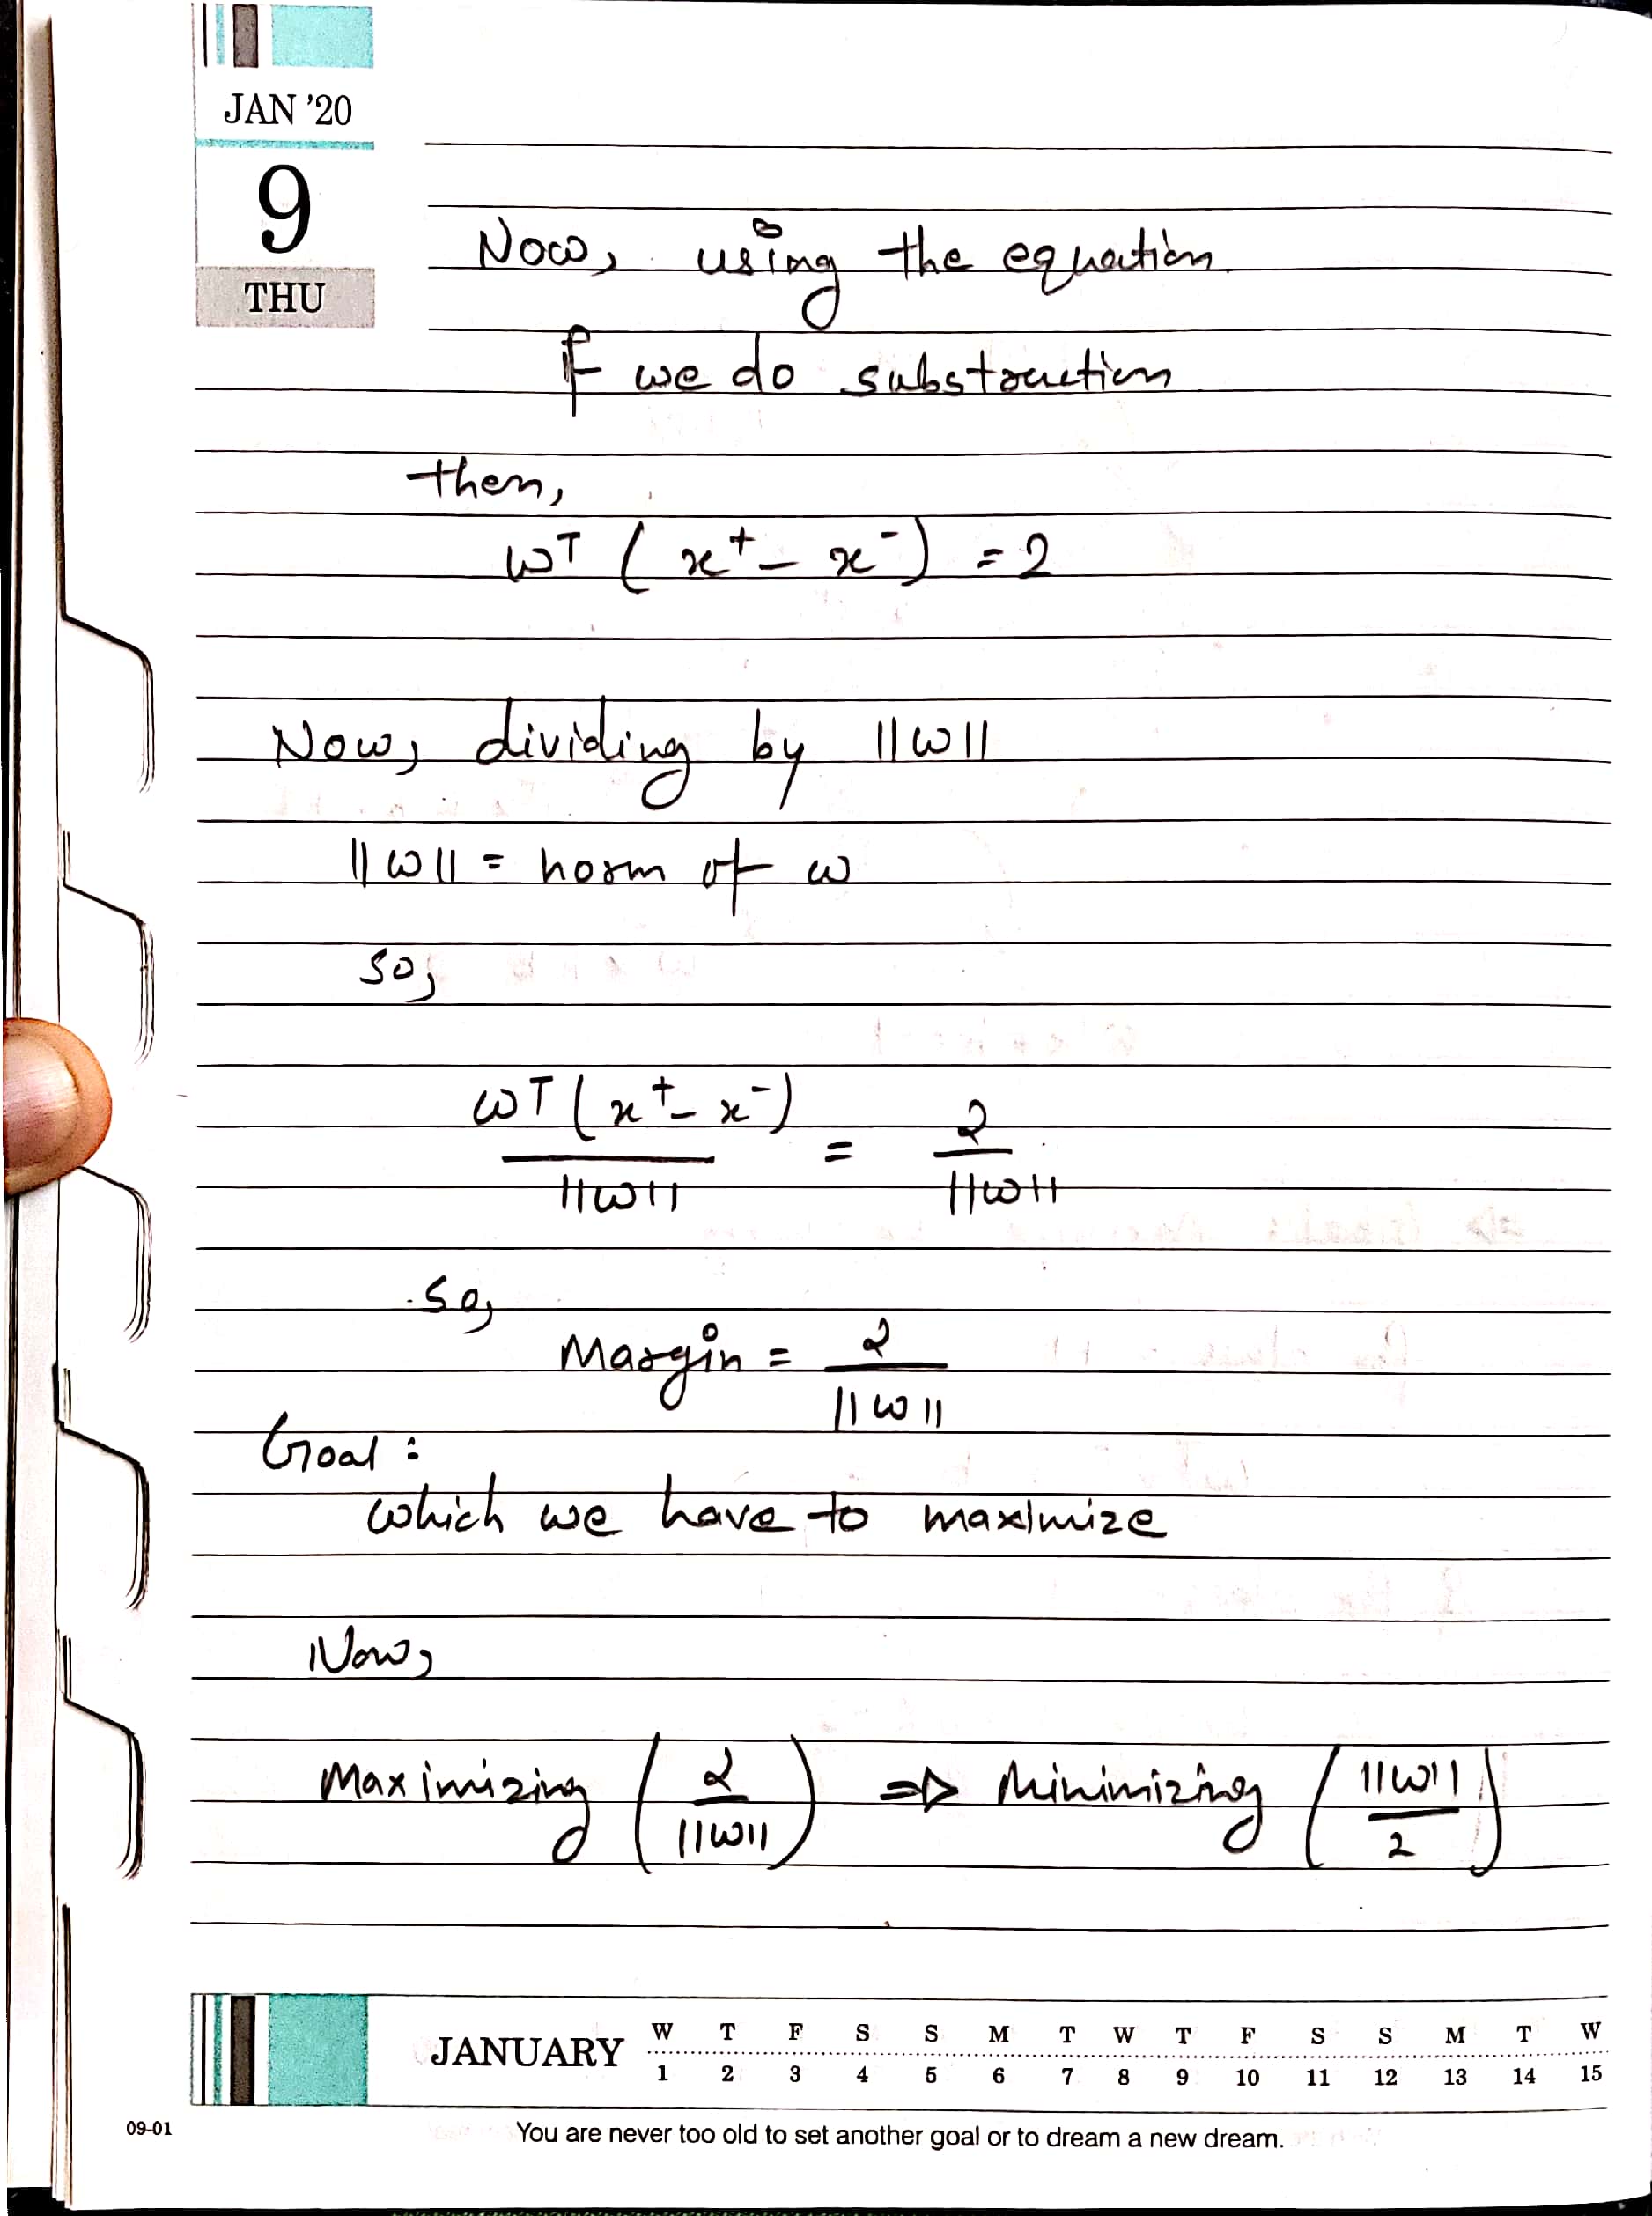 JAN '20
9
THU
Now, using the equation
If we do substraction
then,
wᵀ (x⁺ – x⁻) = 2
Now, dividing by ||w||
||w|| = norm of w
so,
wᵀ (x⁺ – x⁻) / ||w|| = 2 / ||w||
So,
Margin = 2 / ||w||
Goal :
which we have to maximize
Now,
Maximizing (2 / ||w||) ⇒ Minimizing (||w|| / 2)
JANUARY
W T F S S M T W T F S S M T W
1 2 3 4 5 6 7 8 9 10 11 12 13 14 15
09-01
You are never too old to set another goal or to dream a new dream.